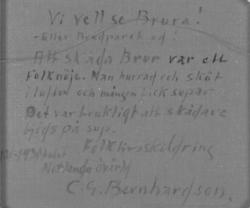 Vi vell se Brura!
- Eller Brudparet ed!
Att skåda Brur var ett
folknöje. Man hurrad och sköt
i luften och mången fick supar
Det var brukligt att skådare
bjöds på sup.
Folklivsskildring
C.G. Bernhardson.